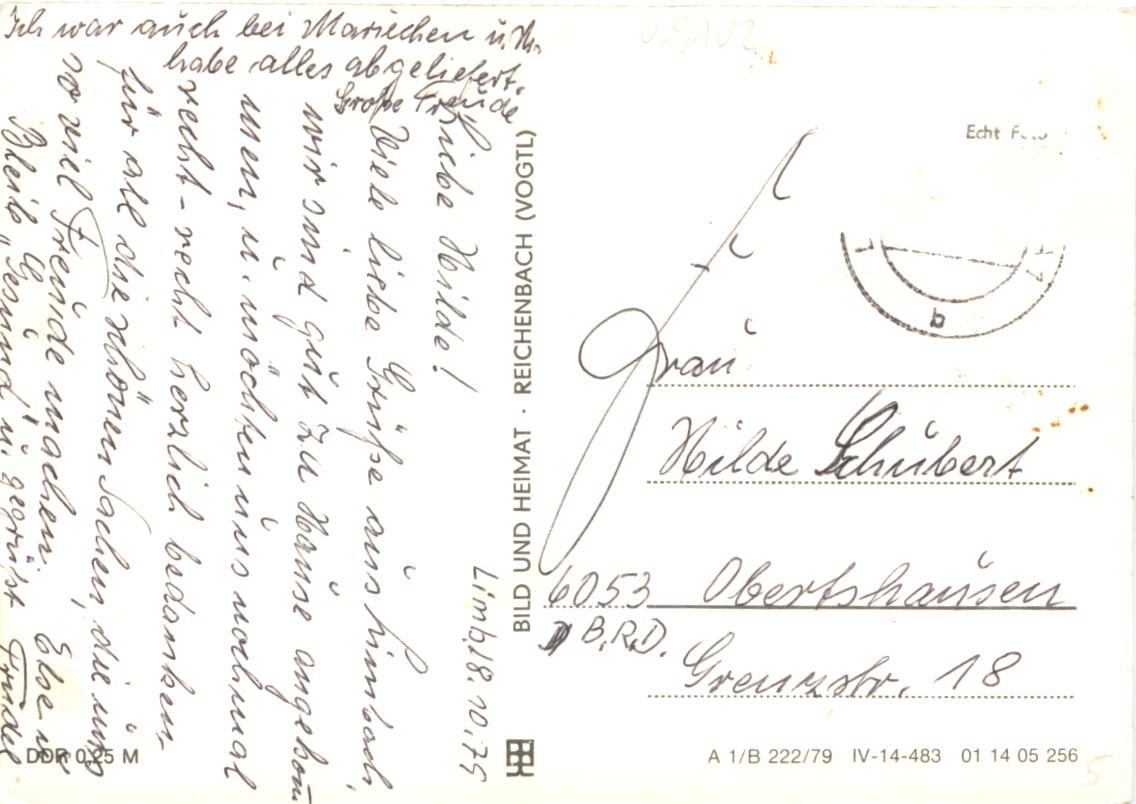 Limb. 8. 10. 75
Liebe Hilde!
Viele liebe Grüße aus Limbach,
wir sind gut zu Hause angekom
men, u. möchten uns nochmal
recht - recht herzlich bedanken
für all die schönen Sachen, die uns
so viel Freude machen.
Bleib Gesund u. gegrüßt Else u.
Trudel
Ich war auch bei Mariechen u.
habe alles abgeliefert.
Große Freude
BILD UND HEIMAT · REICHENBACH (VOGTL)
Echt
b
Frau
Hilde Schubert
6053 Obertshausen
B.R.D.
Grenzstr. 18
DDR 0,25 M
A 1/B 222/79 IV-14-483 01 14 05 256
5